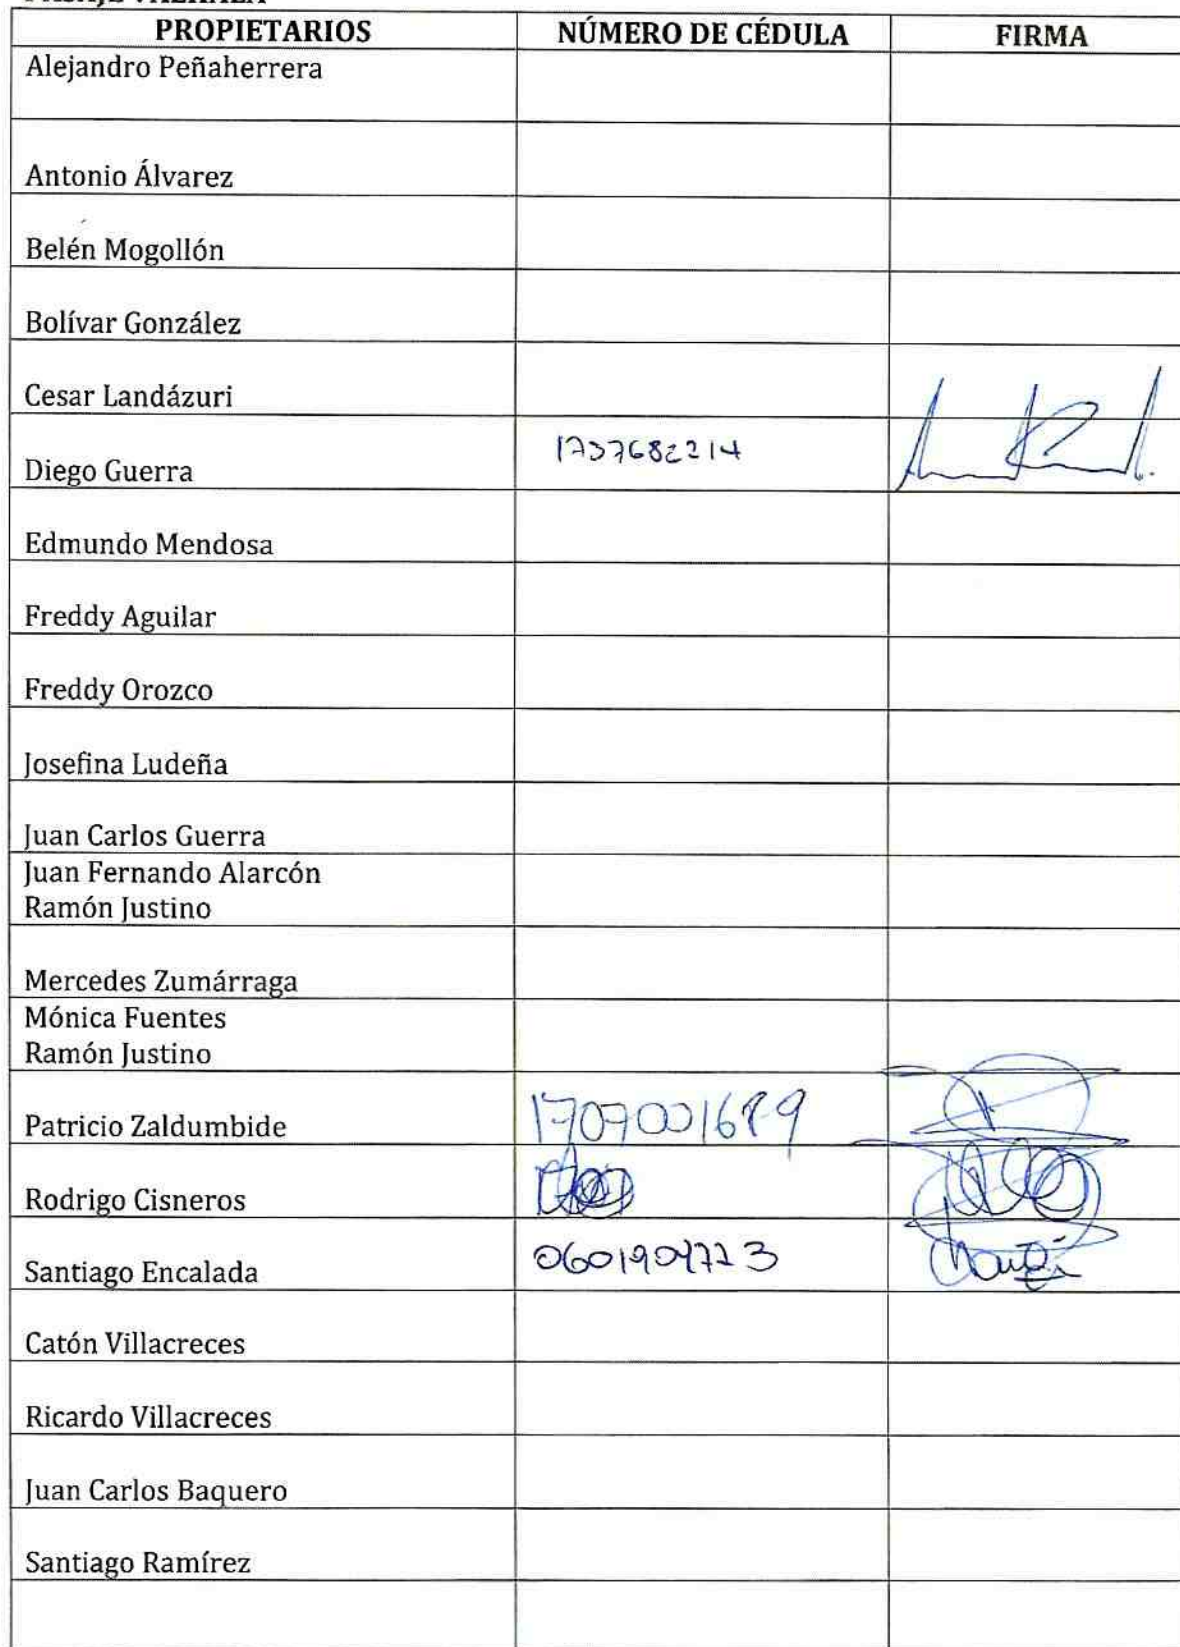 PROPIETARIOS NÚMERO DE CÉDULA FIRMA
Alejandro Peñaherrera
Antonio Álvarez
Belén Mogollón
Bolívar González
Cesar Landázuri
Diego Guerra 1737682214
Edmundo Mendosa
Freddy Aguilar
Freddy Orozco
Josefina Ludeña
Juan Carlos Guerra
Juan Fernando Alarcón
Ramón Justino
Mercedes Zumárraga
Mónica Fuentes
Ramón Justino
Patricio Zaldumbide 1707001689
Rodrigo Cisneros
Santiago Encalada
Catón Villacreces
Ricardo Villacreces
Juan Carlos Baquero
Santiago Ramírez